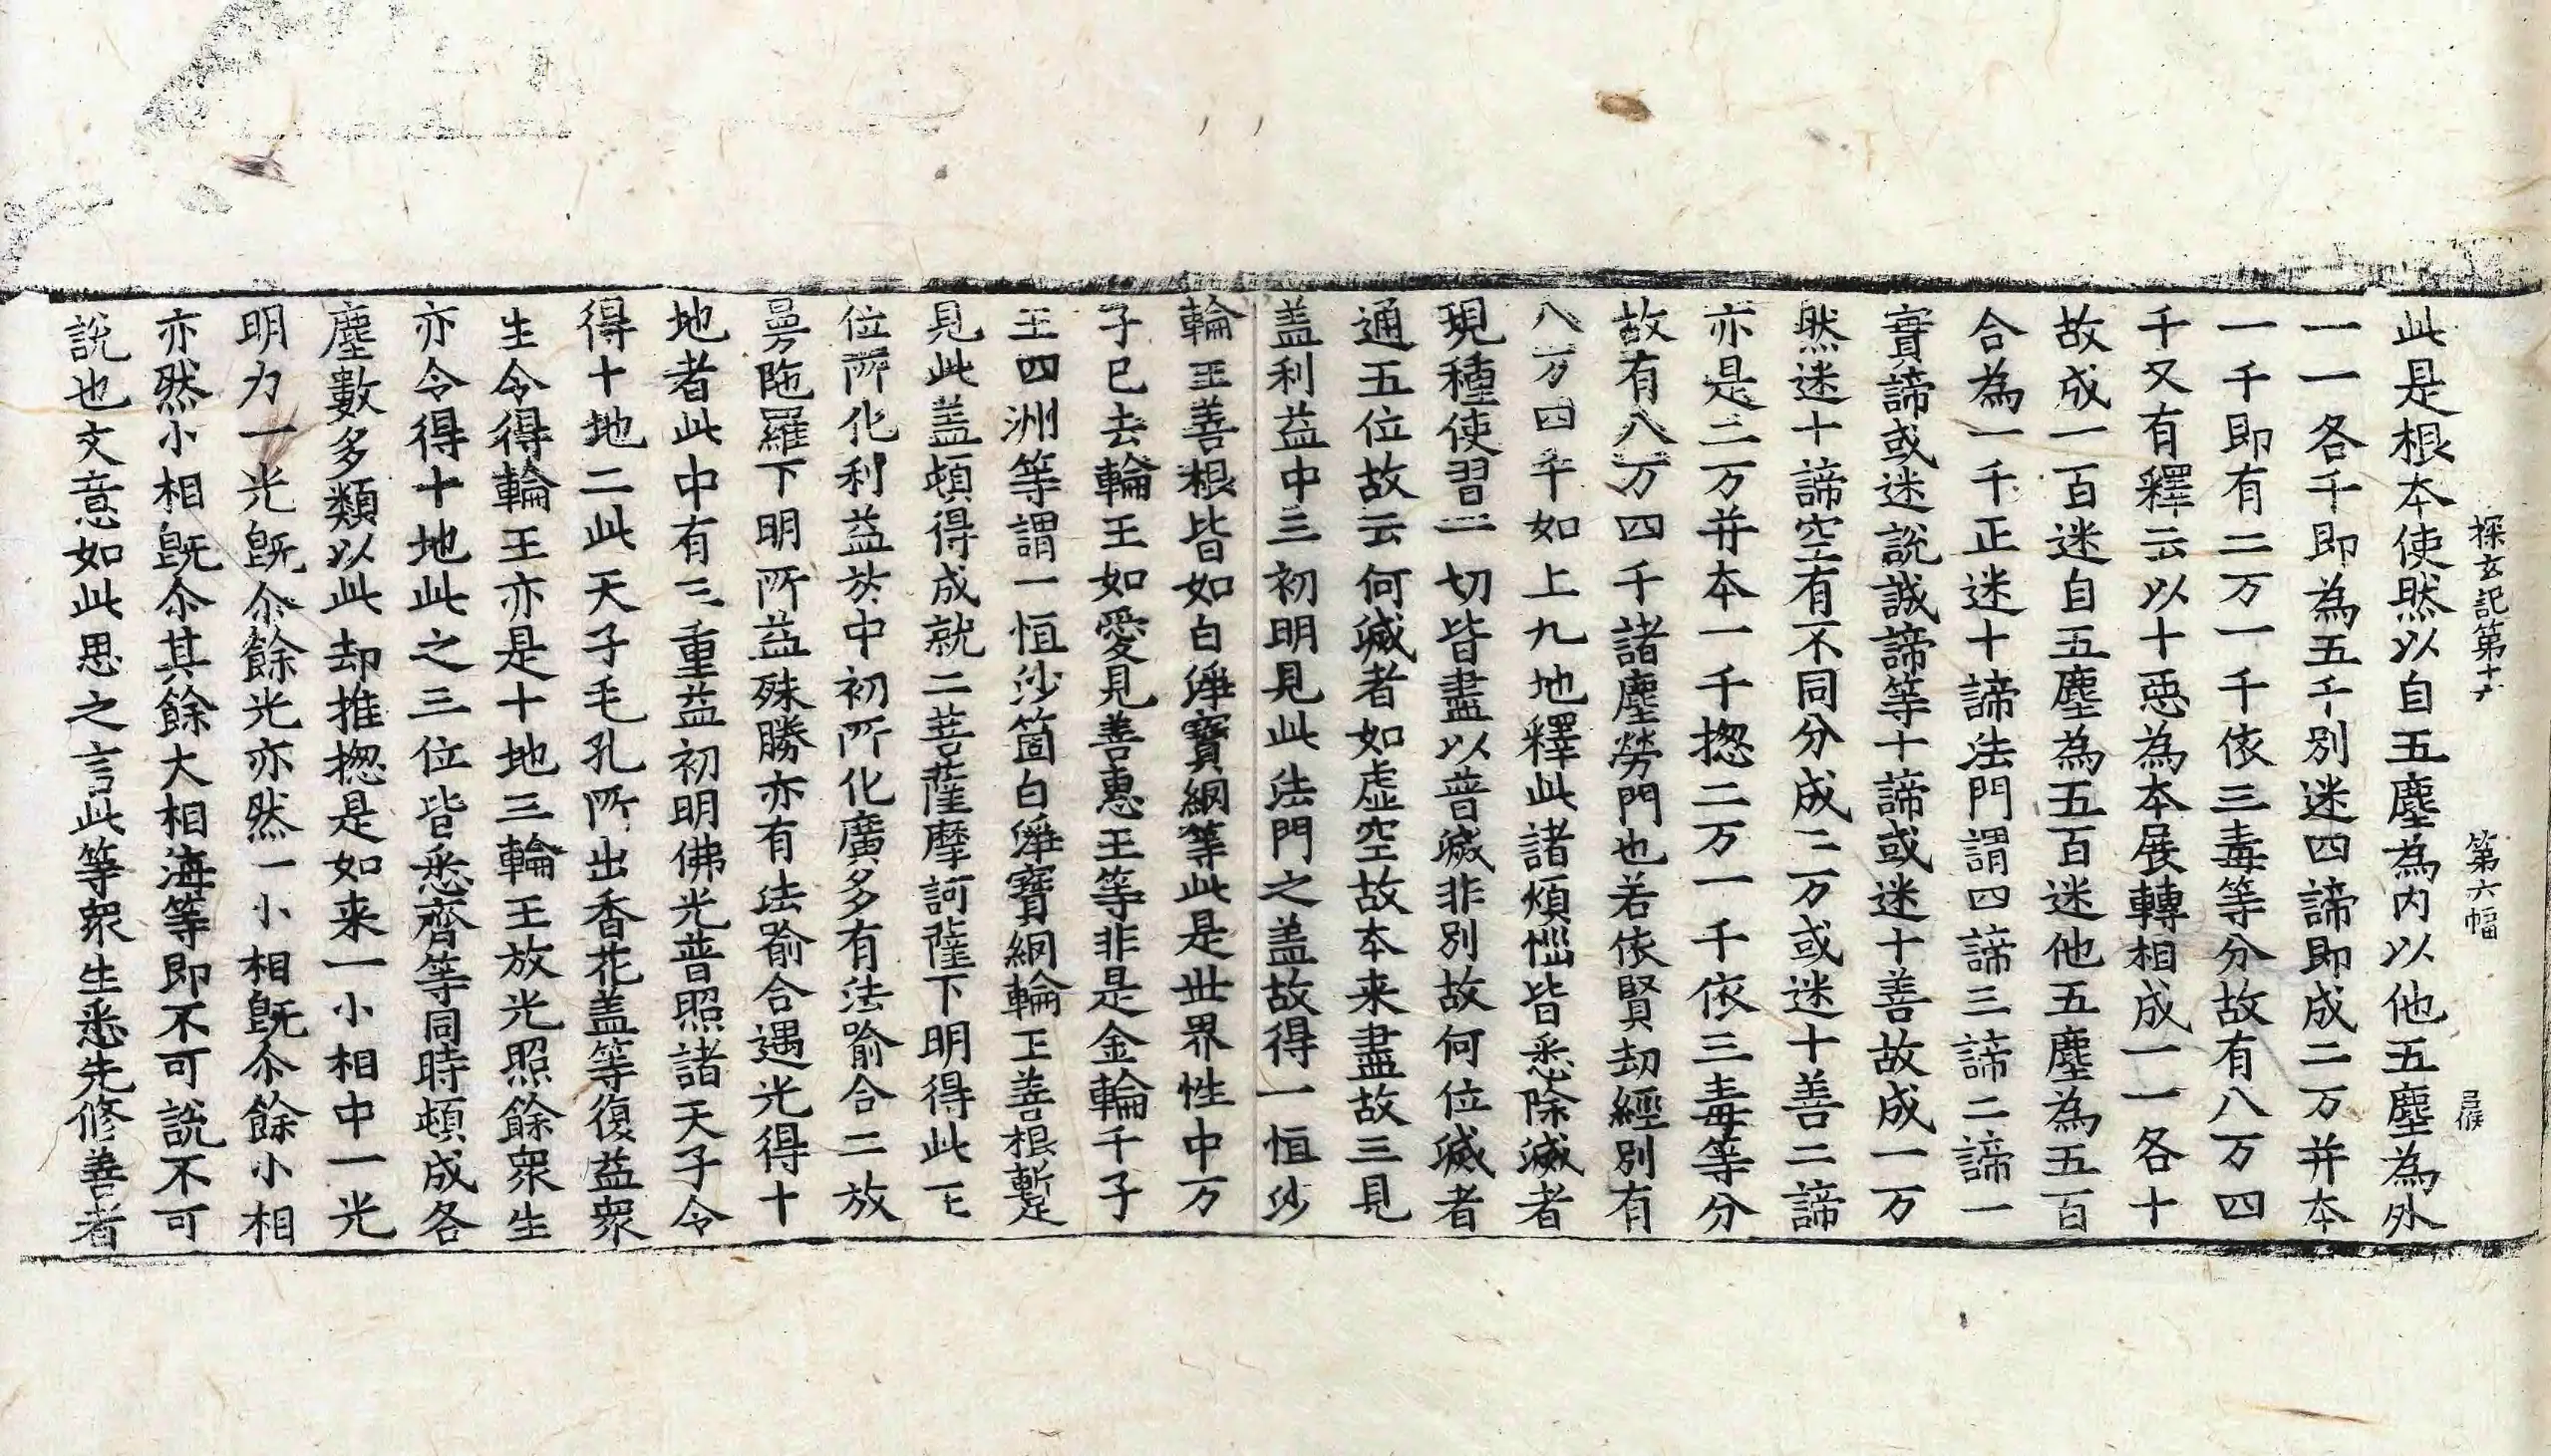 探玄記第十六　第六幅
此是根本使然以自五塵為内以他五塵為外
一一各千即為五千別迷四諦即成二万并本
一千即有二万一千依三毒等分故有八万四
千又有釋云以十惡為本展轉相成一一各十
故成一百迷自五塵為五百迷他五塵為五百
合為一千正迷十諦法門謂四諦三諦二諦一
實諦或迷說誠諦等十諦或迷十善故成一万
然迷十諦空有不同分成二万或迷十善二諦
亦是二万并本一千揔二万一千依三毒等分
故有八万四千諸塵勞門也若依賢劫經別有
八万四千如上九地釋此諸煩惱皆悉除滅者
現種使習一切皆盡以普滅非別故何位滅者
通五位故云何滅者如虛空故本来盡故三見
盖利益中三初明見此法門之盖故得一恒沙
輪王善根皆如白淨寳網等此是世界性中万
子已去輪王如愛見善惠王等非是金輪千子
王四洲等謂一恒沙箇白淨寳網輪王善根暫
見此盖頓得成就二菩薩摩訶薩下明得此王
位所化利益於中初所化廣多有法喻合二放
曼陁羅下明所益殊勝亦有法喻合遇光得十
地者此中有三重益初明佛光普照諸天子令
得十地二此天子毛孔所出香花盖等復益衆
生令得輪王亦是十地三輪王放光照餘衆生
亦令得十地此之三位皆悉齊等同時頓成各
塵數多類以此却推揔是如来一小相中一光
明力一光旣尒餘光亦然一小相旣尒餘小相
亦然小相旣尒其餘大相海等即不可說不可
說也文意如此思之言此等衆生悉先修善者